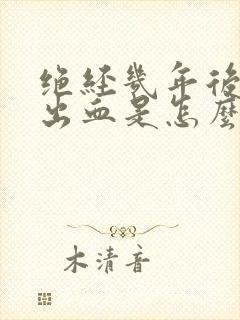 绝经几年後
出血是怎麼
木清音